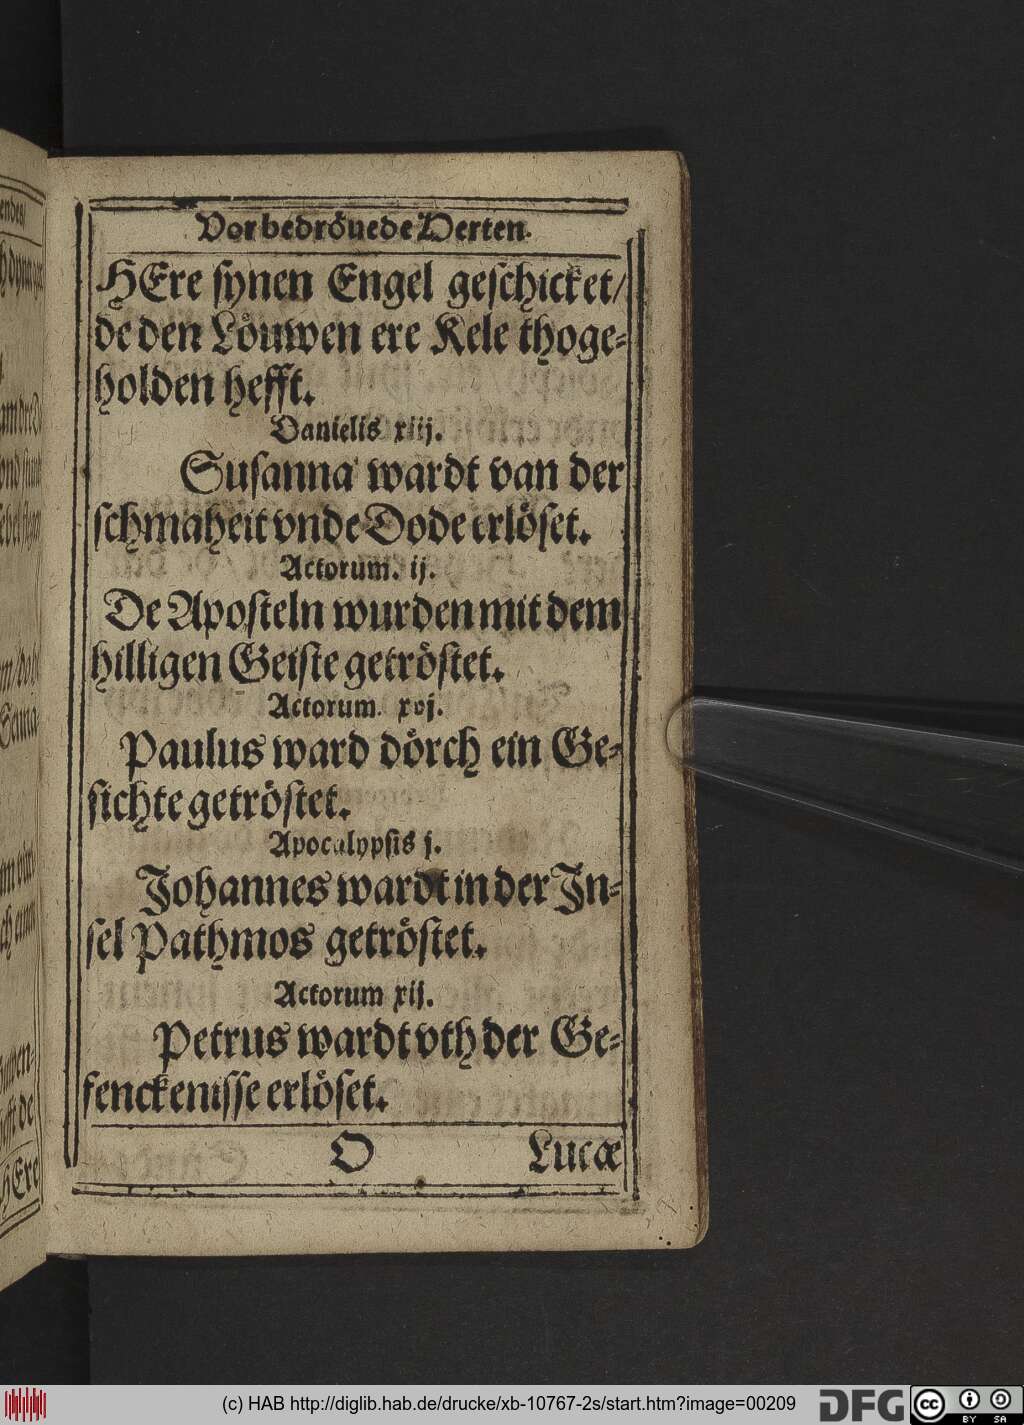 Vorbedröuede Herten.
HEre synen Engel geschicket/
de den Löuwen ere Kele thoge-
holden hefft.
Danielis xiij.
Susanna wardt van der
schmaheit vnde Dode erlöset.
Actorum. ij.
De Aposteln wurden mit dem
hilligen Geiste getröstet.
Actorum. xvj.
Paulus ward dörch ein Ge-
sichte getröstet.
Apocalypsis j.
Johannes wardt in der In-
sel Pathmos getröstet.
Actorum xij.
Petrus wardt vth der Ge-
fenckenisse erlöset.
O Lucæ
HEre
(c) HAB http://diglib.hab.de/drucke/xb-10767-2s/start.htm?image=00209
DFG
cc
BY SA